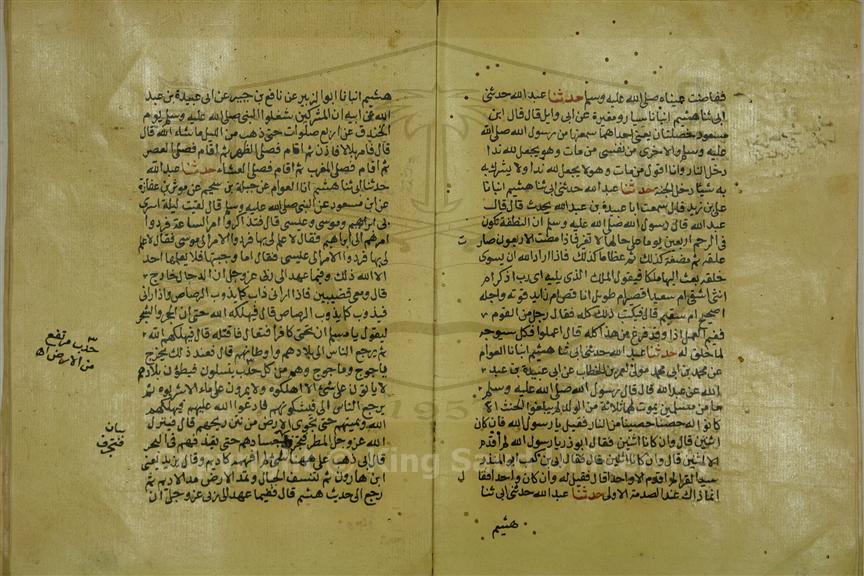 ففاضت عيناه صلى الله عليه وسلم حدثنا عبد الله حدثنى
ابى ثنا هشيم انبانا سيار ومغيرة عن ابى وايل قال قال ابن
مسعود خصلتان يعنى احداهما سمعتها من رسول الله صلى الله
عليه وسلم والاخرى من نفسى من مات وهو يجعل لله ندا
دخل النار وانا اقول من مات وهو لا يجعل لله ندا ولا يشرك به
به شيا دخل الجنة حدثنا عبد الله حدثنى ابى ثنا هشيم انبانا
على بن زيد قال سمعت ابا عبيدة بن عبد الله يحدث قال قال
عبد الله قال رسول الله صلى الله عليه وسلم ان النطفة تكون
فى الرحم اربعين يوما على حالها لا تغير فاذا مضت الاربعون صارت
علقه ثم مضغة كذلك ثم عظاما كذلك فاذا اراد الله ان يسوى
خلقه بعث اليها ملكا فيقول الملك الذى يليه اى رب اذكر ام
انثى اشقى ام سعيد اقصير ام طويل انا قص ام زايد قوته واجله
اصحيح ام سقيم قال فيكتب ذلك كله فقال رجل من القوم
ففيم العمل اذا وقد فرغ من هذا كله قال اعملوا فكل سيوجه
لما خلق له حدثنا عبد الله حدثنى ابى ثنا هشيم انبانا العوام
عن محمد بن ابى محمد مولى لعمر بن الخطاب عن ابى عبيدة بن عبد
الله عن عبد الله قال قال رسول الله صلى الله عليه وسلم
ما من مسلمين يموت لهما ثلاثة من الولد لم يبلغوا الحنث الا
كانوا له حصنا حصينا من النار فقيل يا رسول الله فان كان
اثنين قال وان كانا اثنين فقال ابو ذر يا رسول الله لم اقدم
الا اثنين قال وان كانا اثنين قال فقال ابى بن كعب ابو المنذر
سيد القرا لم اقدم الا واحدا قال فقيل له وان كان واحدا فقال
انما ذاك عند الصدمة الاولى حدثنا عبد الله حدثنى ابى ثنا
هشيم
هشيم انبانا ابو الزبير عن نافع بن جبير عن ابى عبيدة بن عبد
الله عن ابيه ان المشركين شغلوا النبى صلى الله عليه وسلم يوم
الخندق عن اربع صلوات حتى ذهب من الليل ما شاء الله قال
قال فامر بلالا فاذن ثم اقام فصلى الظهر ثم اقام فصلى العصر
ثم اقام فصلى المغرب ثم اقام فصلى العشاء حدثنا عبد الله
حدثنى ابى ثنا هشيم انا العوام عن جبلة بن سحيم عن موثر بن عفازة
عن ابن مسعود عن النبى صلى الله عليه وسلم قال لقيت ليلة اسرى
بى ابراهيم وموسى وعيسى قال فتذاكروا امر الساعة فردوا
امرهم الى ابراهيم فقال لا علم لى بها فردوا الامر الى موسى فقال لا علم
لى بها فردوا الامر الى عيسى فقال اما وجبتها فلا يعلمها احد
الا الله ذلك وفيما عهد الى ربى عز وجل ان الدجال خارج
قال ومعى قضيبين فاذا رانى ذاب كما يذوب الرصاص
فيذوب كما يذوب الرصاص قال فيهلكه الله حتى ان الحجر والشجر
ليقول يا مسلم ان تحتى كافرا فتعال فاقتله قال فيهلكهم الله
ثم يرجع الناس الى بلادهم واوطانهم قال فعند ذلك يخرج
ياجوج وماجوج وهم من كل حدب ينسلون فيطؤن بلادهم
لا ياتون على شئ الا اهلكوه ولا يمرون على ماء الا شربوه ثم
يرجع الناس الى فيشكونهم فادعوا الله عليهم فيهلكهم
الله ويميتهم حتى تجوى الارض من نتن ريحهم قال فينزل
الله عز وجل المطر فتجرف اجسادهم حتى يقذفهم فى البحر
قال ابى ذهب على ههنا شئ لم افهمه كاديم وقال يزيد يعنى
ابن هارون ثم تنسف الجبال وتمد الارض مد الاديم ثم
رجع الى حديث هشيم قال ففيما عهد الى ربى عز وجل ان
حدب مرتفع
من الارض
فتجرف